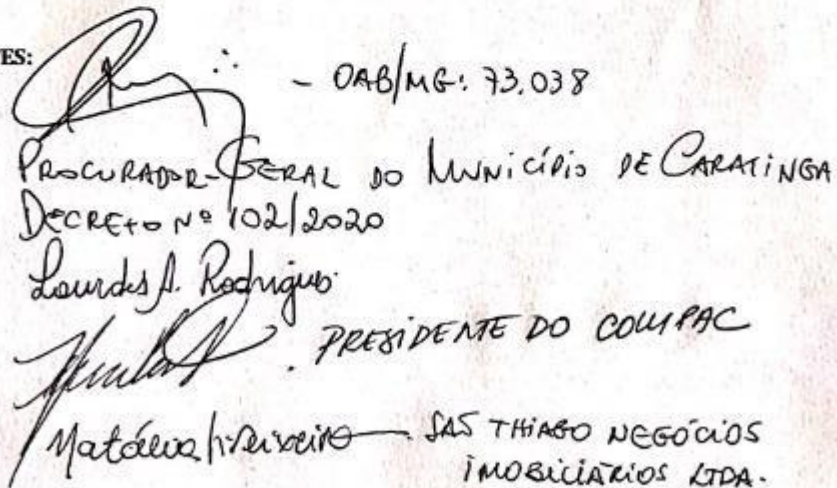 ES:
- OAB/MG: 73.038
PROCURADOR-GERAL DO MUNICÍPIO DE CARATINGA
DECRETO Nº 102/2020
Lourdes A. Rodrigues
. PRESIDENTE DO COMPAC
SAS THIAGO NEGÓCIOS
IMOBILIÁRIOS LTDA.